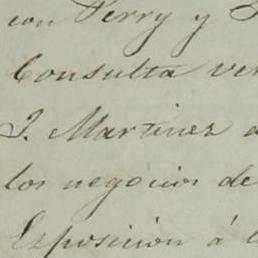 con Perry y
Consulta ver
J. Martinez a
los negocios de
Exposicion á l